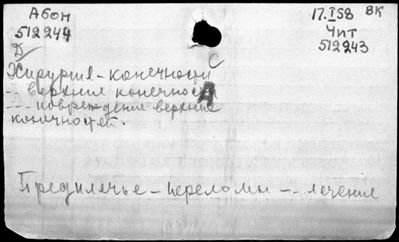 Абон 17.I58 ВК
512244 Чит
512243
Д/ С
Хирургия - конечности
- верхние конечности А
-- повреждения верхние
конечностей.
Предплечье - переломы -- лечение